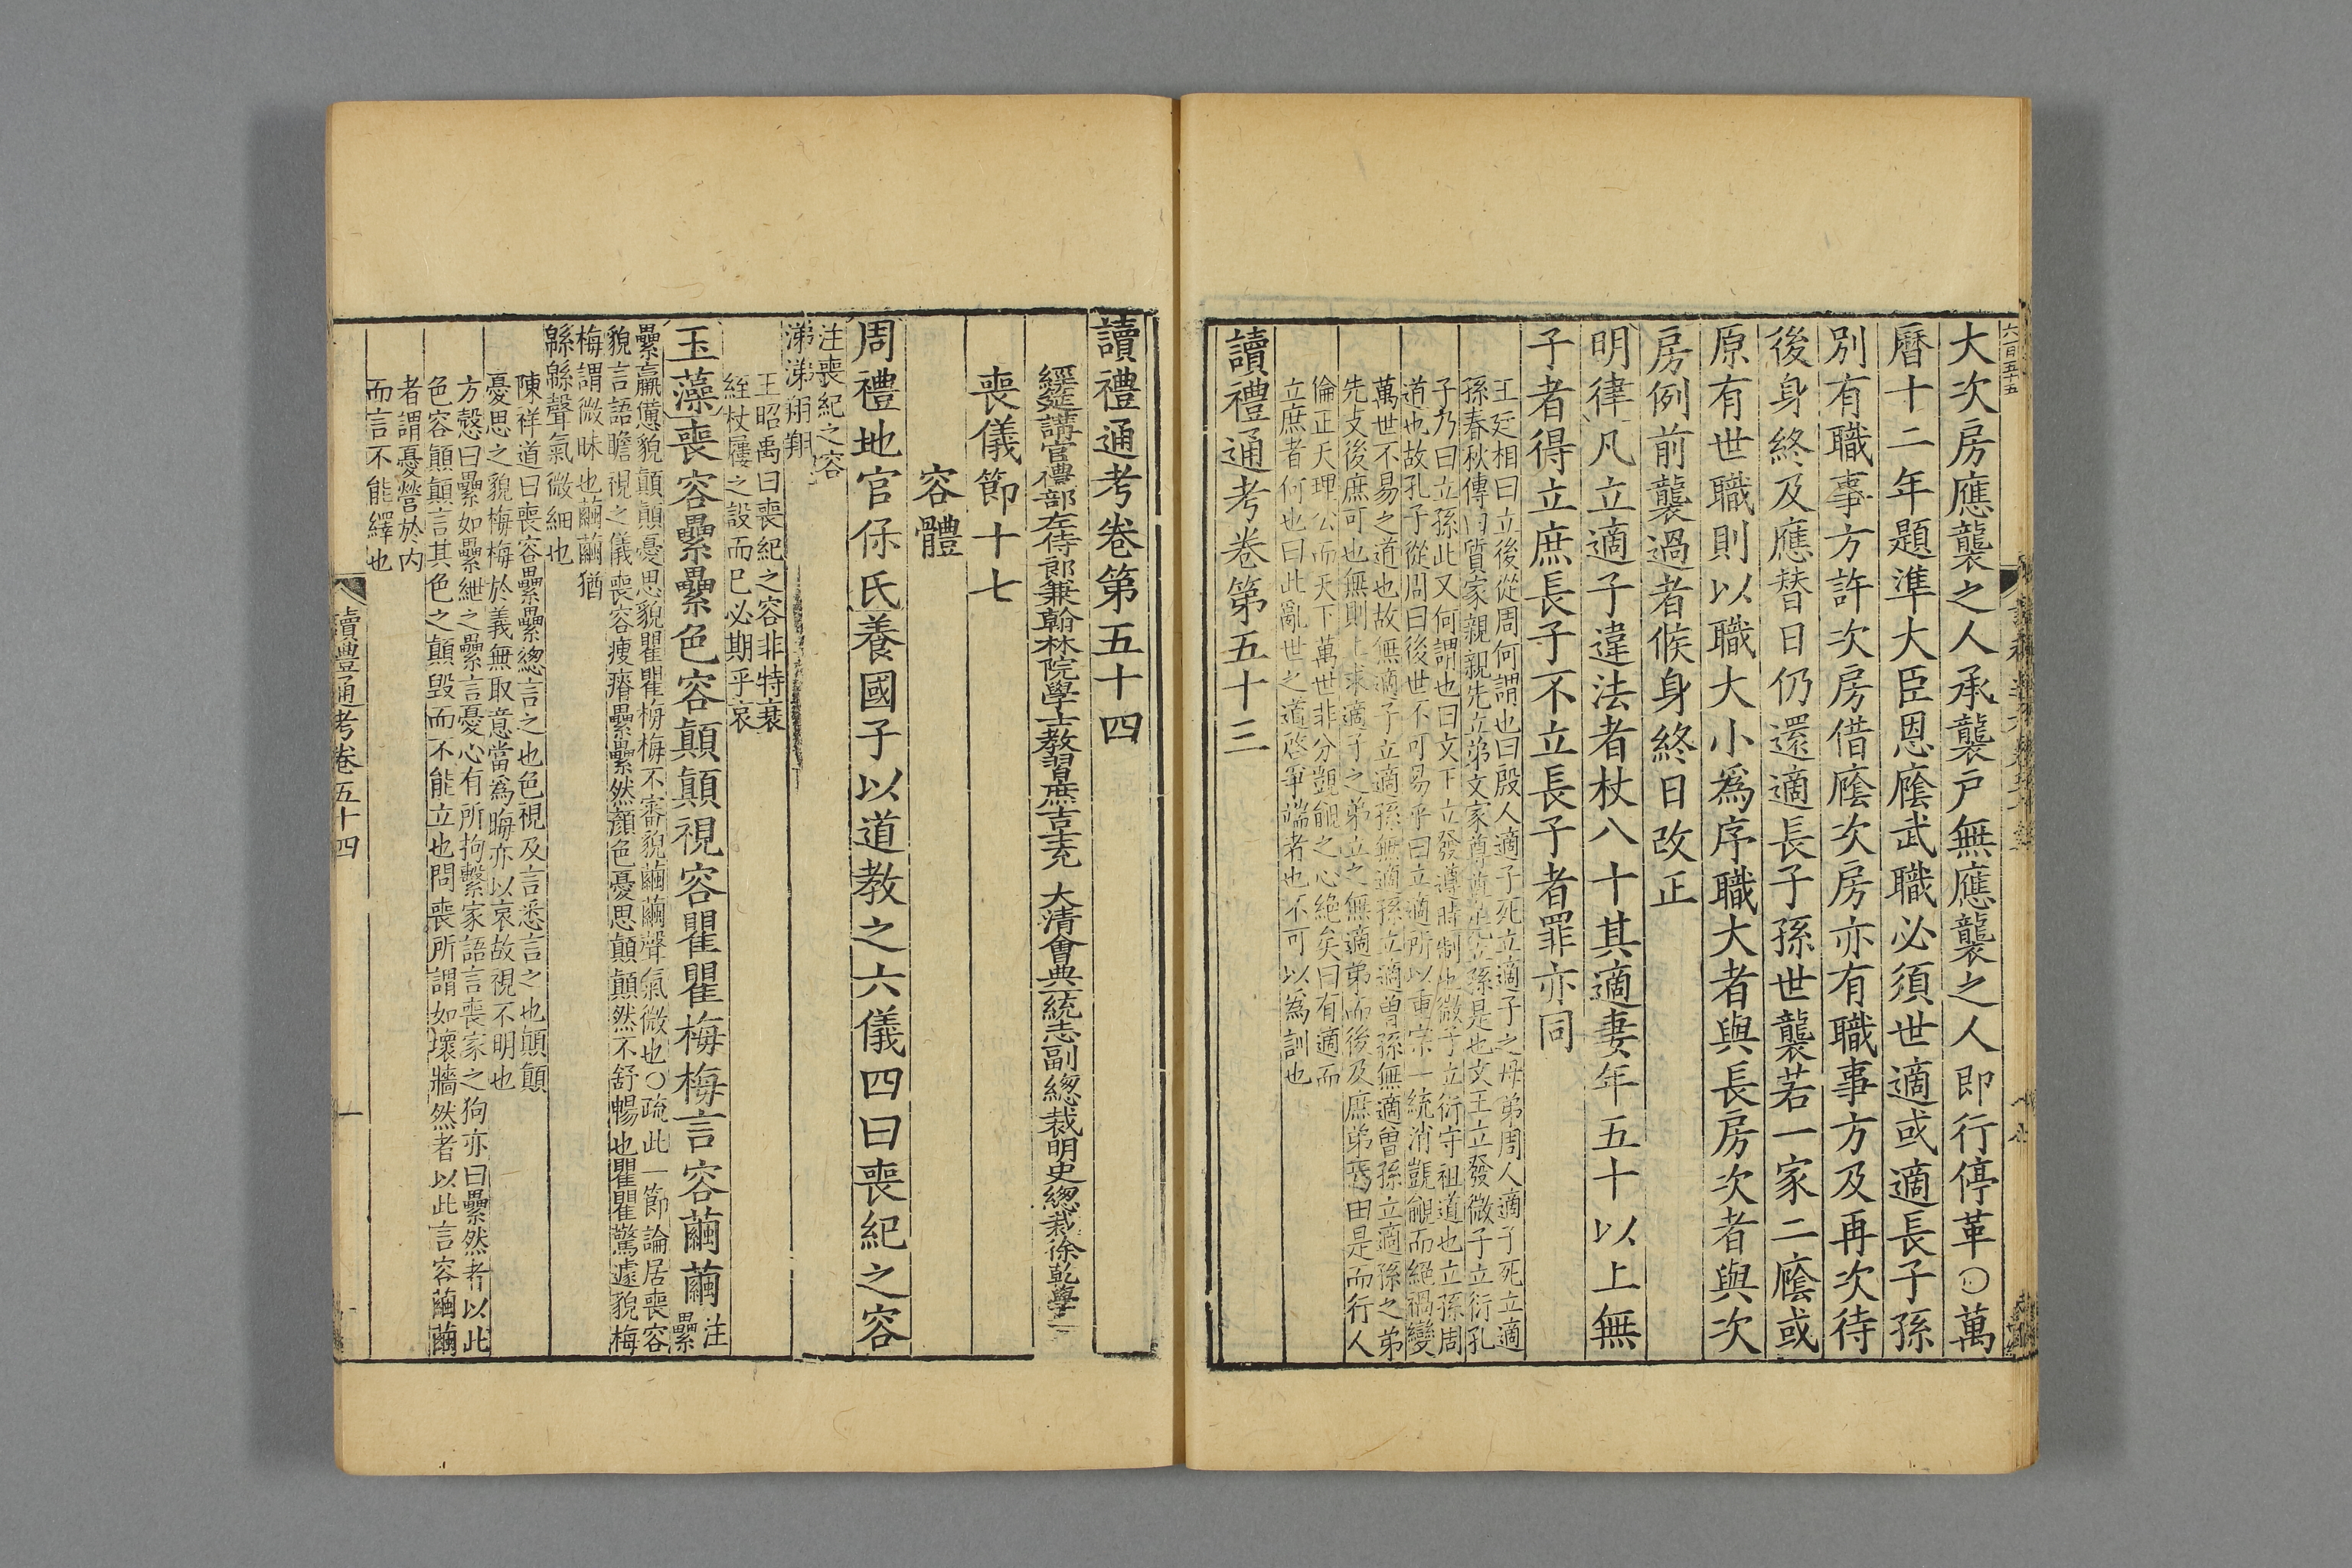 六一百五十五
大次房應襲之人承襲戶無應襲之人即行停革○萬
曆十二年題準大臣恩廕武職必須世適或適長子孫
別有職事方許次房借廕次房亦有職事方及再次待
後身終及應替日仍還適長子孫世襲若一家二廕或
原有世職則以職大小爲序職大者與長房次者與次
房例前襲過者候身終日改正
明律凡立適子違法者杖八十其適妻年五十以上無
子者得立庶長子不立長子者罪亦同
王廷相曰立後從周何謂也曰殷人適子死立適子之母弟周人適子死立適
孫春秋傳曰質家親親先立弟文家尊尊先立孫是也文王立發微子立衍孔
子乃曰立孫此又何謂也曰文下立發遵時制也微子立衍守祖道也立孫周
道也故孔子從周曰後世不可易乎曰立適所以重宗一統消覬覦而絕禍變
萬世不易之道也故無適子立適孫無適孫立適曾孫無適曾孫立適孫之弟
先支後庶可也無則上求適子之弟立之無適弟而後及庶弟焉由是而行人
倫正天理公而天下萬世非分覬覦之心絶矣曰有適而
立庶者何也曰此亂世之道啓軍端者也不可以為訓也
讀禮通考卷第五十三
讀禮通考卷第五十四
經筵講官禮部左侍郎兼翰林院學士教習庶吉士充 大清會典一統志副總裁明史總裁徐乾學
喪儀節十七
容體
周禮地官保氏養國子以道教之六儀四曰喪紀之容
注喪紀之容
涕涕翔翔
王昭禹曰喪紀之容非特衰
絰杖屨之設而已必期乎哀
玉藻喪容纍纍色容顛顛視容瞿瞿梅梅言容繭繭注纍
纍羸憊貌顛顛憂思貌瞿瞿梅梅不審貌繭繭聲氣微也○疏此一節論居喪容
貌言語瞻視之儀喪容瘦瘠纍纍然顏色憂思顛顛然不舒暢也瞿瞿驚遽貌梅
梅謂微昧也繭繭猶
緜緜聲氣微細也
陳祥道曰喪容纍纍總言之也色視及言悉言之也顛顛
憂思之貌梅梅於義無取意當爲晦亦以哀故視不明也
方慤曰纍如纍紲之纍言憂心有所拘繫家語言喪家之狗亦曰纍然者以此
色容顛顛言其色之顛毀而不能立也問喪所謂如壞牆然者以此言容繭繭
者謂憂營於內
而言不能繹也
讀禮通考卷五十四
一